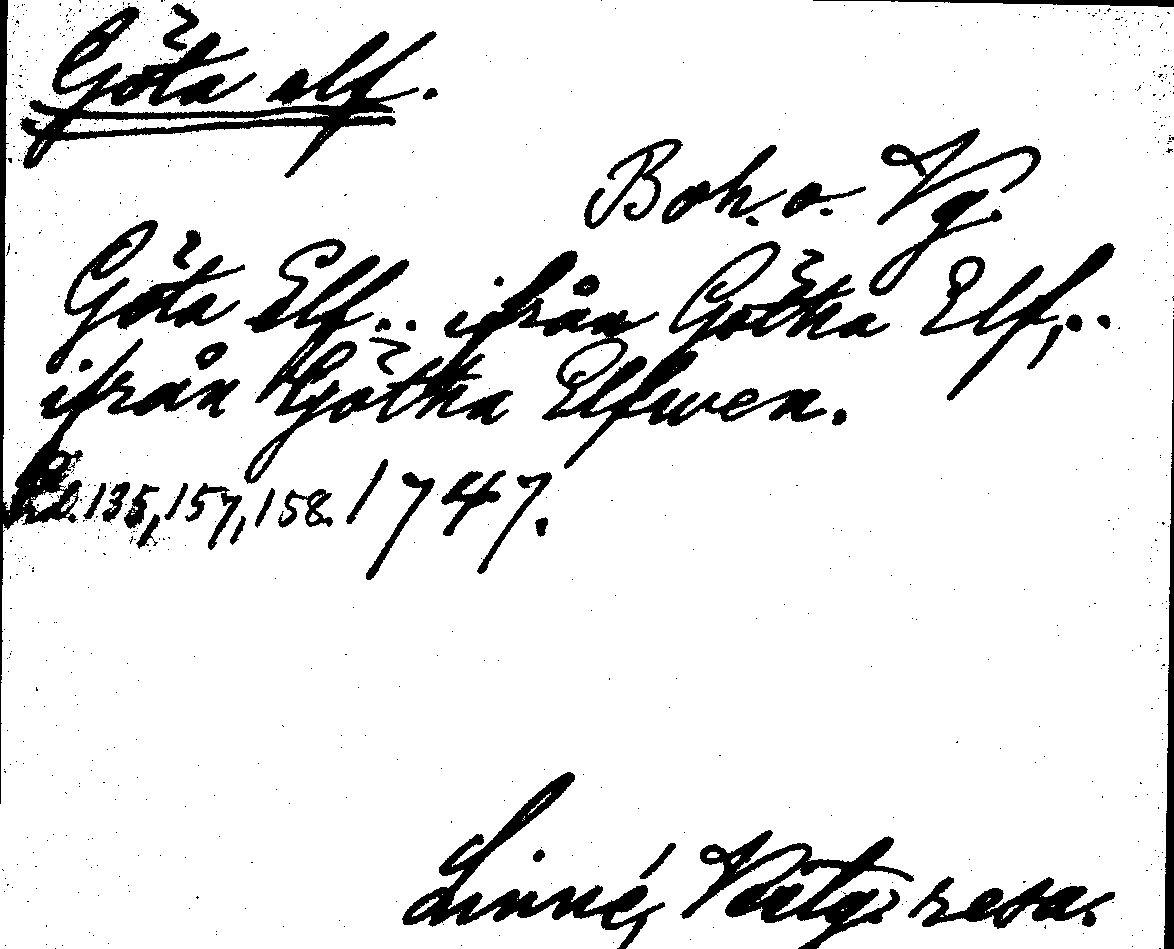 Göta elf.
Boh. o. Vg.
Göta Elf... ifrån Götha Elf,..
ifrån Götha Elfwen.
Sid. 135, 157, 158. 1747.
Linné, Västg. resa.